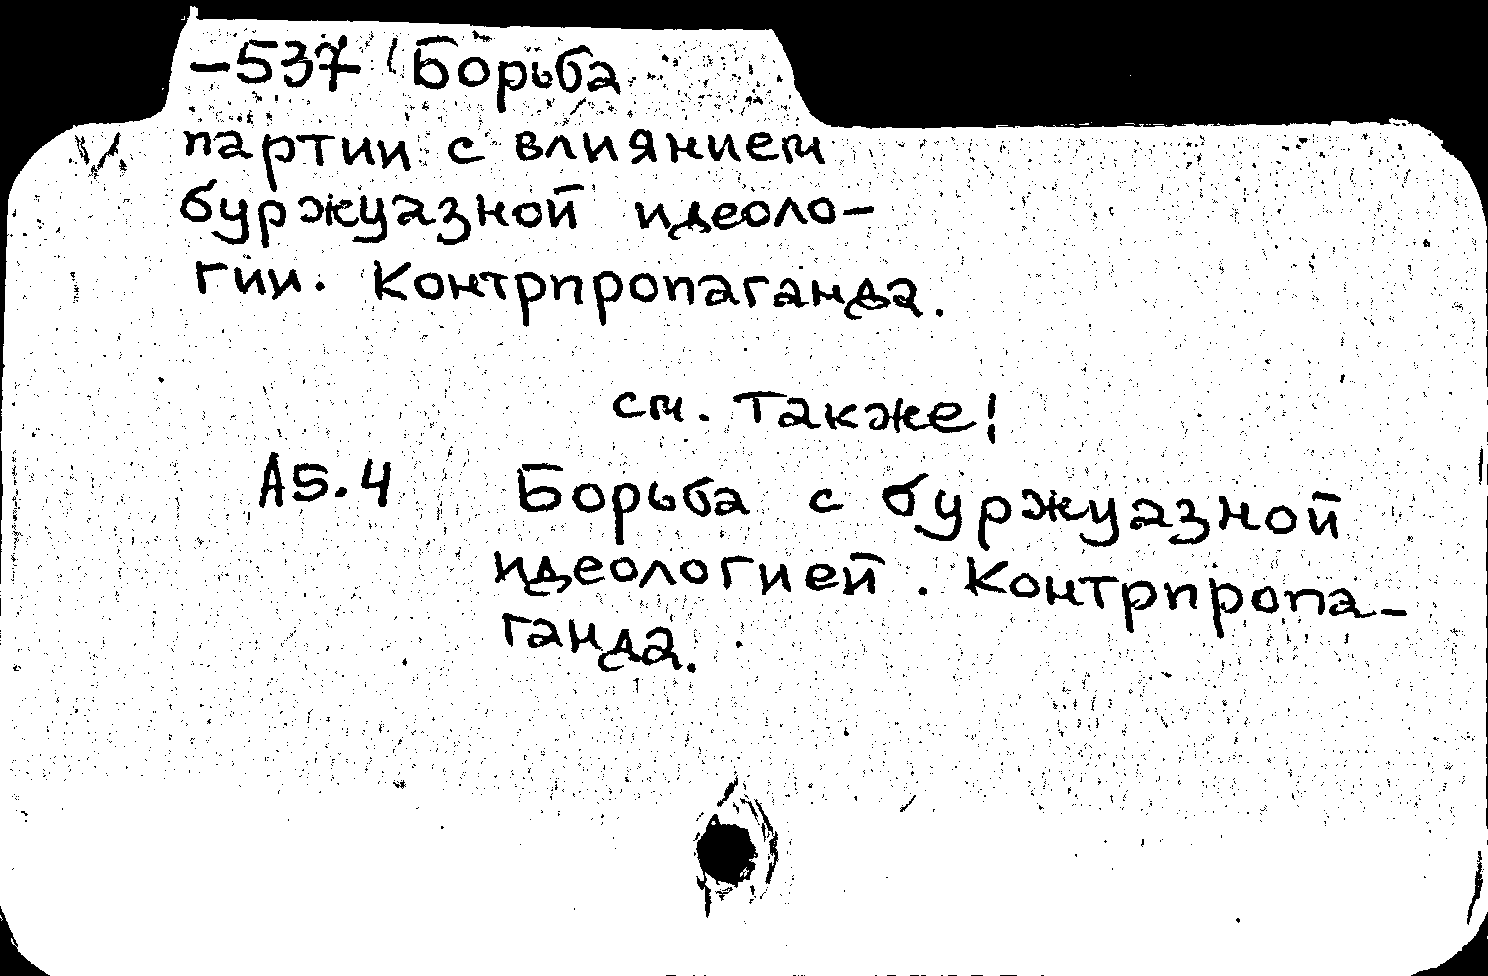 -537 Борьба
партии с влиянием
буржуазной идеоло-
гии. Контрпропаганда.
см. также!
А5.4 Борьба с буржуазной
идеологией. Контрпропа-
ганда.